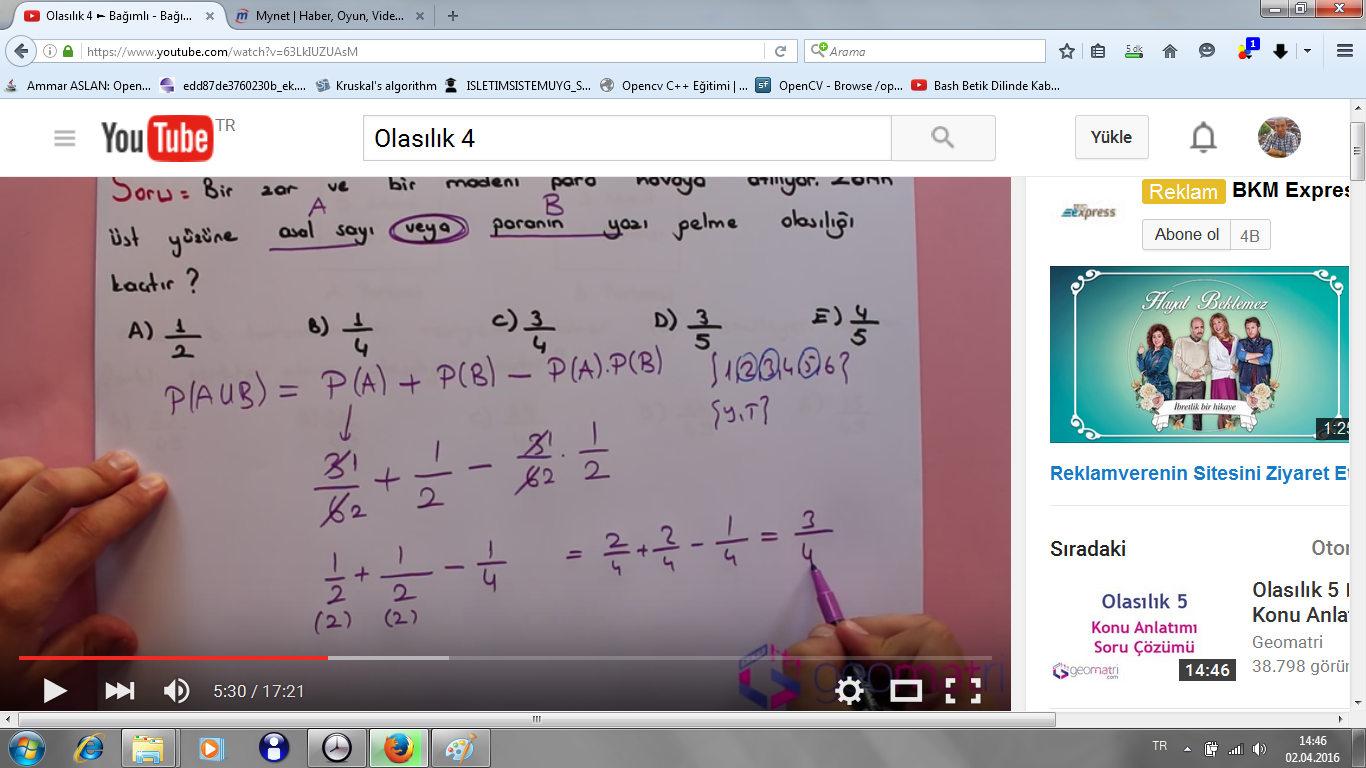 Olasılık 4 ► Bağımlı - Bağı...
Mynet | Haber, Oyun, Vide...
https://www.youtube.com/watch?v=63LkIUZUAsM
Arama
5 dk
1
Ammar ASLAN: Open...
edd87de3760230b_ek....
Kruskal's algorithm
ISLETIMSISTEMUYG_S...
Opencv C++ Eğitimi | ...
OpenCV - Browse /op...
Bash Betik Dilinde Kab...
YouTube TR
Olasılık 4
Yükle
Soru = Bir zar ve bir madeni para havaya atılıyor. Zarın
A B
üst yüzüne asal sayı veya paranın yazı gelme olasılığı
kaçtır ?
A) 1/2 B) 1/4 C) 3/4 D) 3/5 E) 4/5
P(AUB) = P(A) + P(B) - P(A).P(B) {1,2,3,4,5,6}
{Y,T}
3 1/6 2 + 1/2 - 3 1/6 2 . 1/2
1/2 + 1/2 - 1/4 = 2/4 + 2/4 - 1/4 = 3/4
(2) (2)
geomatri
5:30 / 17:21
express
Reklam BKM Expres
Abone ol 4B
Hayat Beklemez
İbretlik bir hikaye
1:25
Reklamverenin Sitesini Ziyaret Et
Sıradaki
Otom
Olasılık 5
Konu Anlatımı
Soru Çözümü
geomatri.com
14:46
Olasılık 5
Konu Anlat
Geomatri
38.798 görün
TR
14:46
02.04.2016